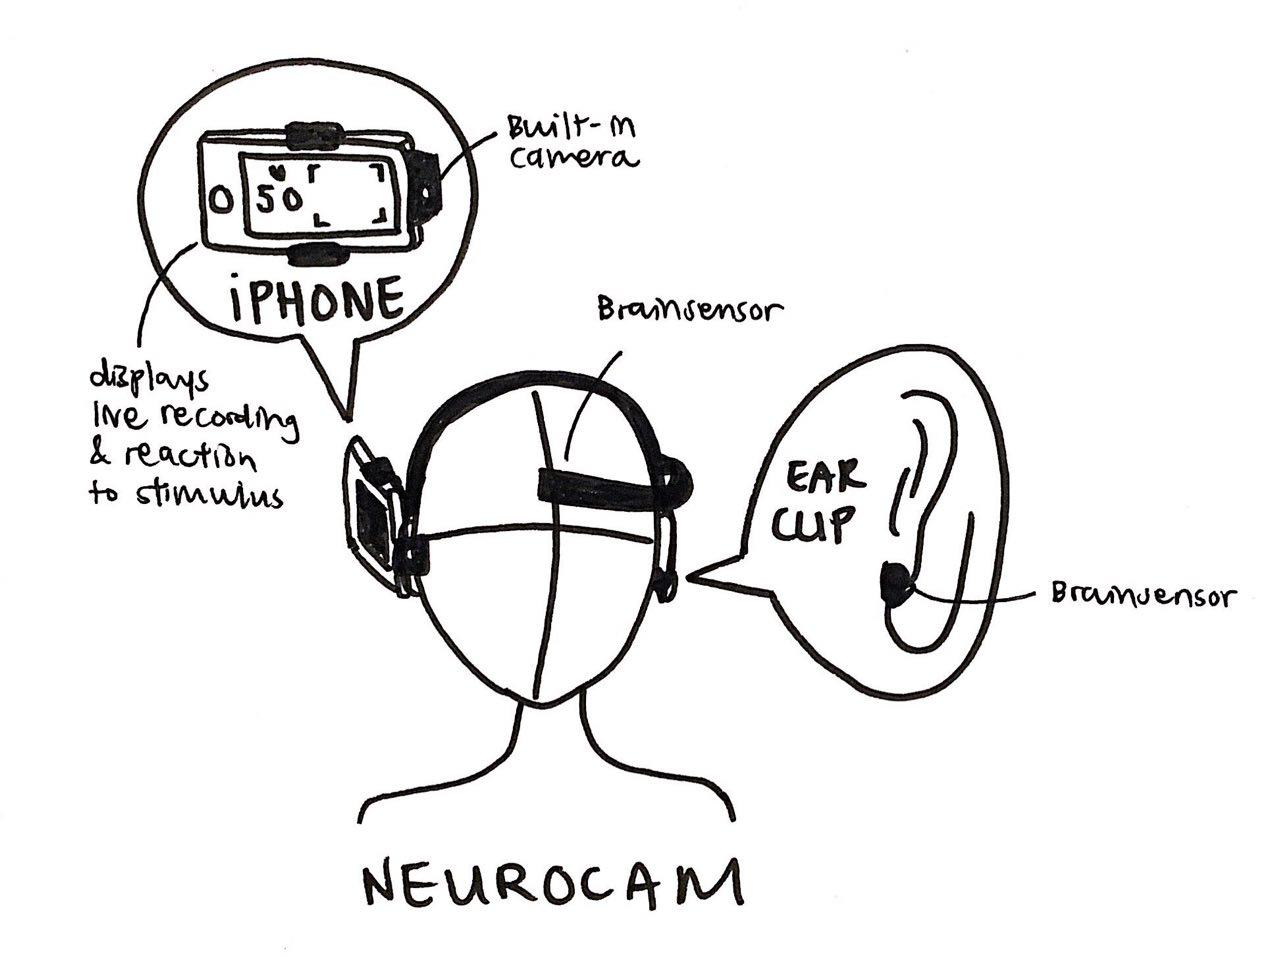 Built-in
camera
50
iPHONE
displays
live recording
& reaction
to stimulus
Brainsensor
EAR
CLIP
Brainsensor
NEUROCAM